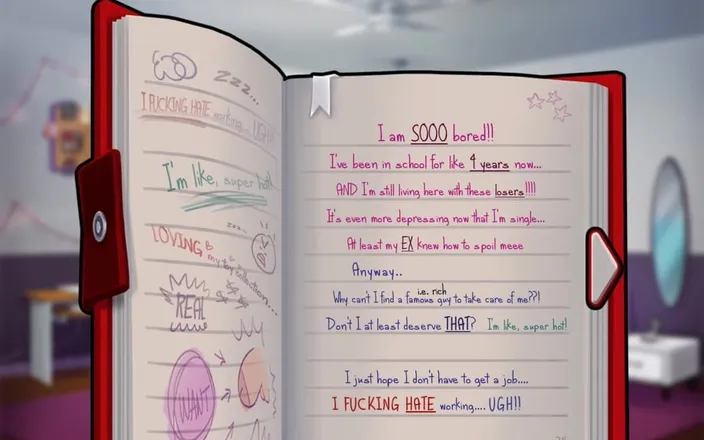 zzz...
I FUCKING HATE working... UGH!!
I'm like, super hot!
zzz...
LOVING
my toy collection...
REAL
WANT
I am SOOO bored!!
I've been in school for like 4 years now...
AND I'm still living here with these losers!!!!
It's even more depressing now that I'm single...
At least my EX knew how to spoil meee
Anyway..
i.e. rich
Why can't I find a famous guy to take care of me??!
Don't I at least deserve THAT? I'm like, super hot!
I just hope I don't have to get a job....
I FUCKING HATE working.... UGH!!